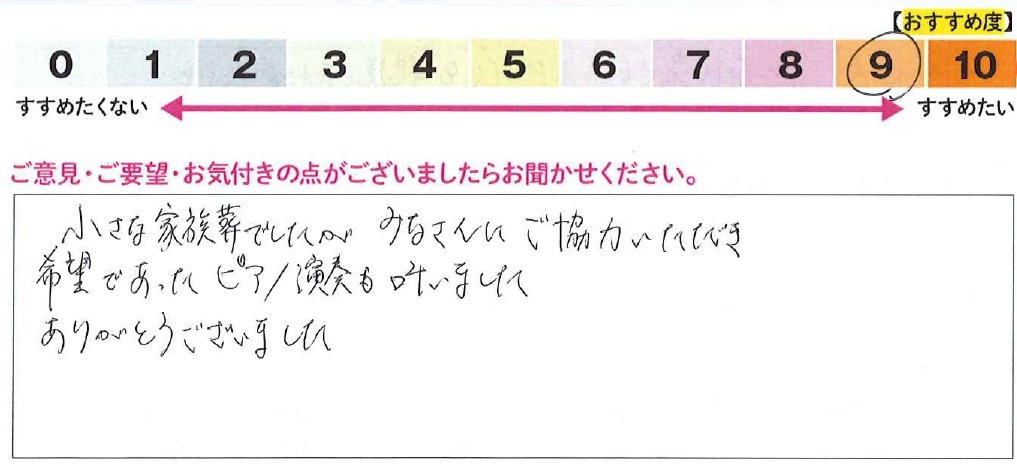 【おすすめ度】
0 1 2 3 4 5 6 7 8 9 10
すすめたくない すすめたい
ご意見・ご要望・お気付きの点がございましたらお聞かせください。
小さな家族葬でしたが みなさんに ご協力いただき
希望であった ピアノ演奏も 叶いました
ありがとうございました